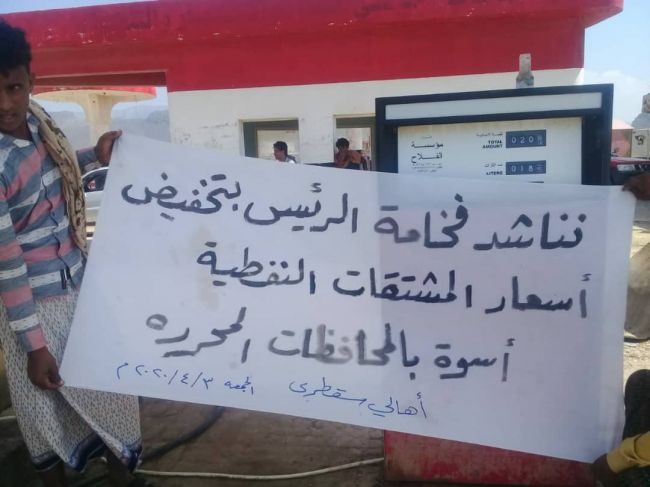 TOTAL AMOUNT
مؤسسة
الفلاح
LITERS
نناشد فخامة الرئيس بتخفيض
أسعار المشتقات النفطية
أسوة بالمحافظات المحرره
أهالي سقطرى الجمعه ٢٠٢٠/٤/٣م